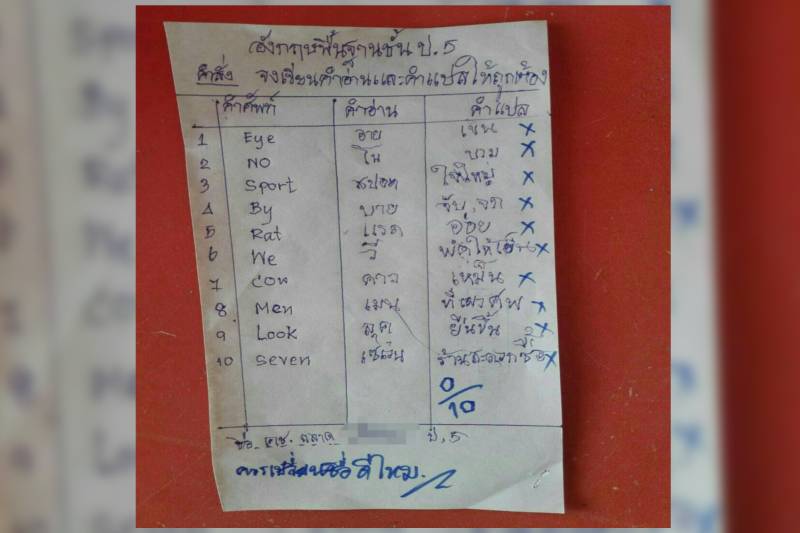 อังกฤษพื้นฐานชั้น ป.5
คำสั่ง จงเขียนคำอ่านและคำแปลให้ถูกต้อง
คำศัพท์ คำอ่าน คำแปล
1 Eye อาย เขิน ×
2 NO โน บวม ×
3 Sport สปอต ใจใหญ่ ×
4 By บาย จับ, ×
5 Rat แรด อ่อย ×
6 We วี พัดให้เย็น ×
7 Cow คาว เหม็น ×
8 Men เมน ที่เผาศพ ×
9 Look ลุค ยืนขึ้น ×
10 Seven เซเว่น ร้านสะดวกซื้อ ×
0/10
ชื่อ ด.ช. ฉลาด ป.5
ควรเปลี่ยนชื่อดีไหม.